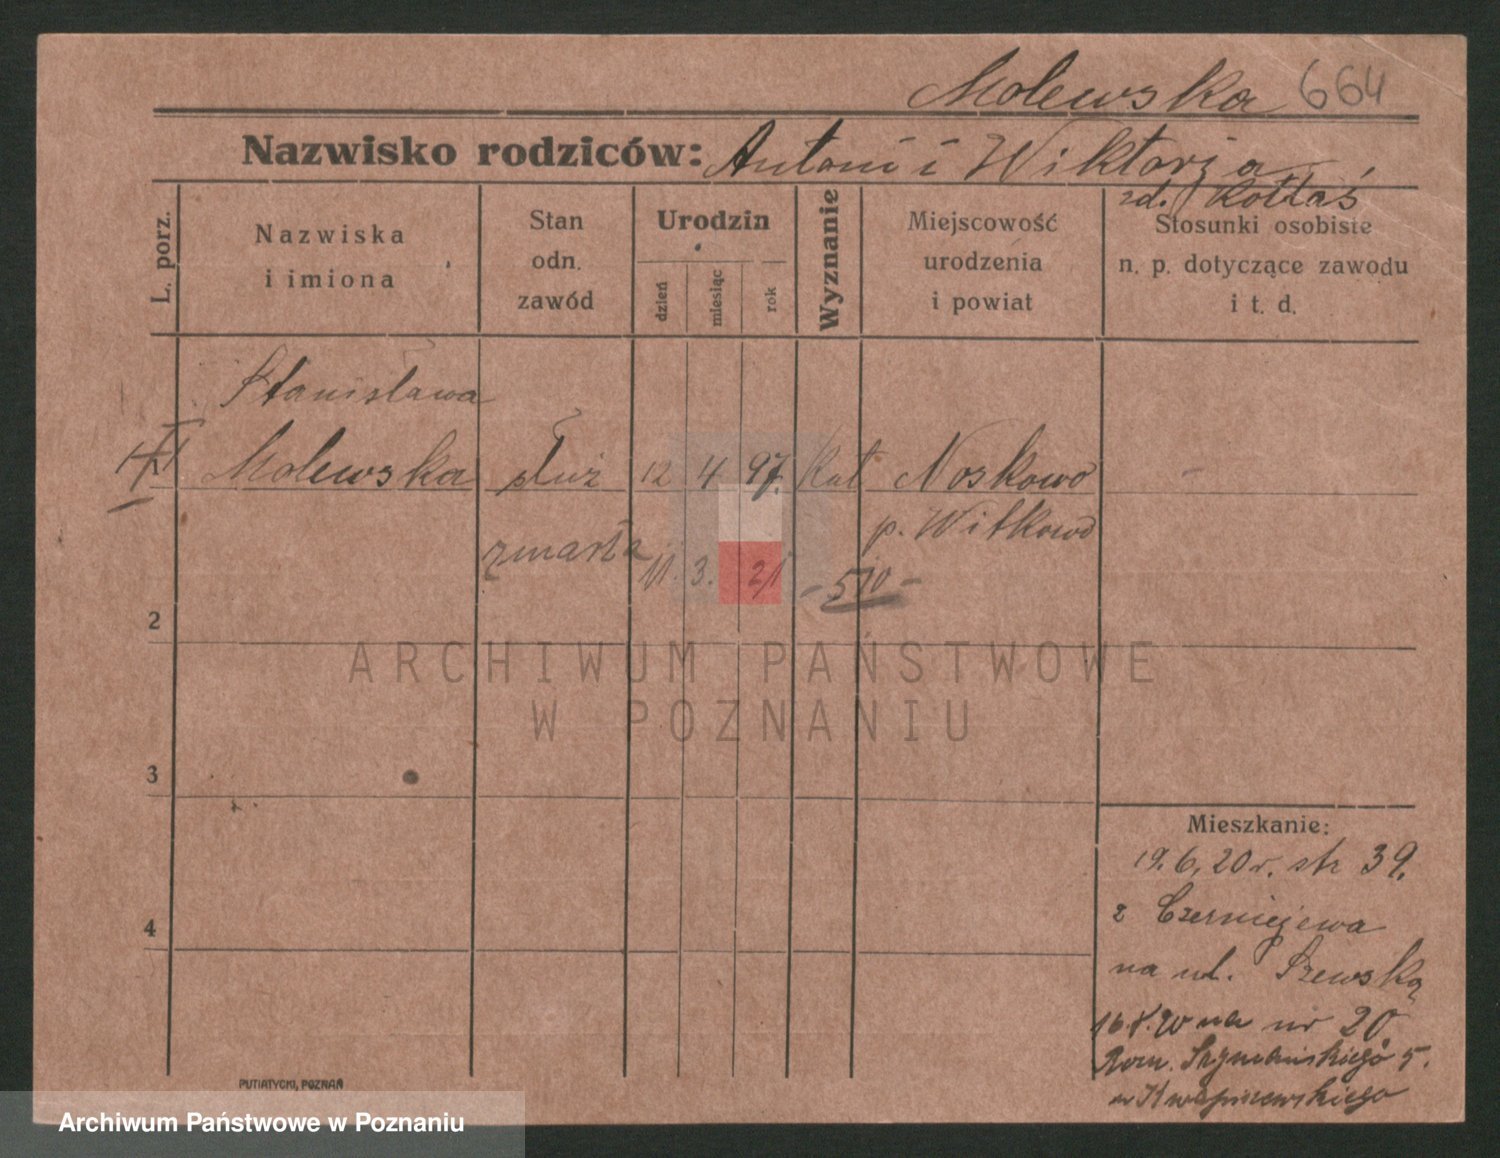 Molewska 664
Nazwisko rodziców: Antoni i Wiktorja
zd. Kołtaś
L. porz.
Nazwiska
i imiona
Stan
odn.
zawód
Urodzin
dzień
miesiąc
rok
Wyznanie
Miejscowość
urodzenia
i powiat
Stosunki osobiste
n. p. dotyczące zawodu
i t. d.
Stanisława
Molewska służ 12 4 97. Kat Noskowo -
p. Witkowo
zmarła 11. 3. 21 - 510 -
2
3
4
ARCHIWUM PAŃSTWOWE
W POZNANIU
Mieszkanie:
19.6.20 r. str 39.
z Czerniejewa
na ul. Szewską
na nr 20
Szymańskiego 5.
Kwapiszewskiego
PUTIATYCKI, POZNAŃ
Archiwum Państwowe w Poznaniu